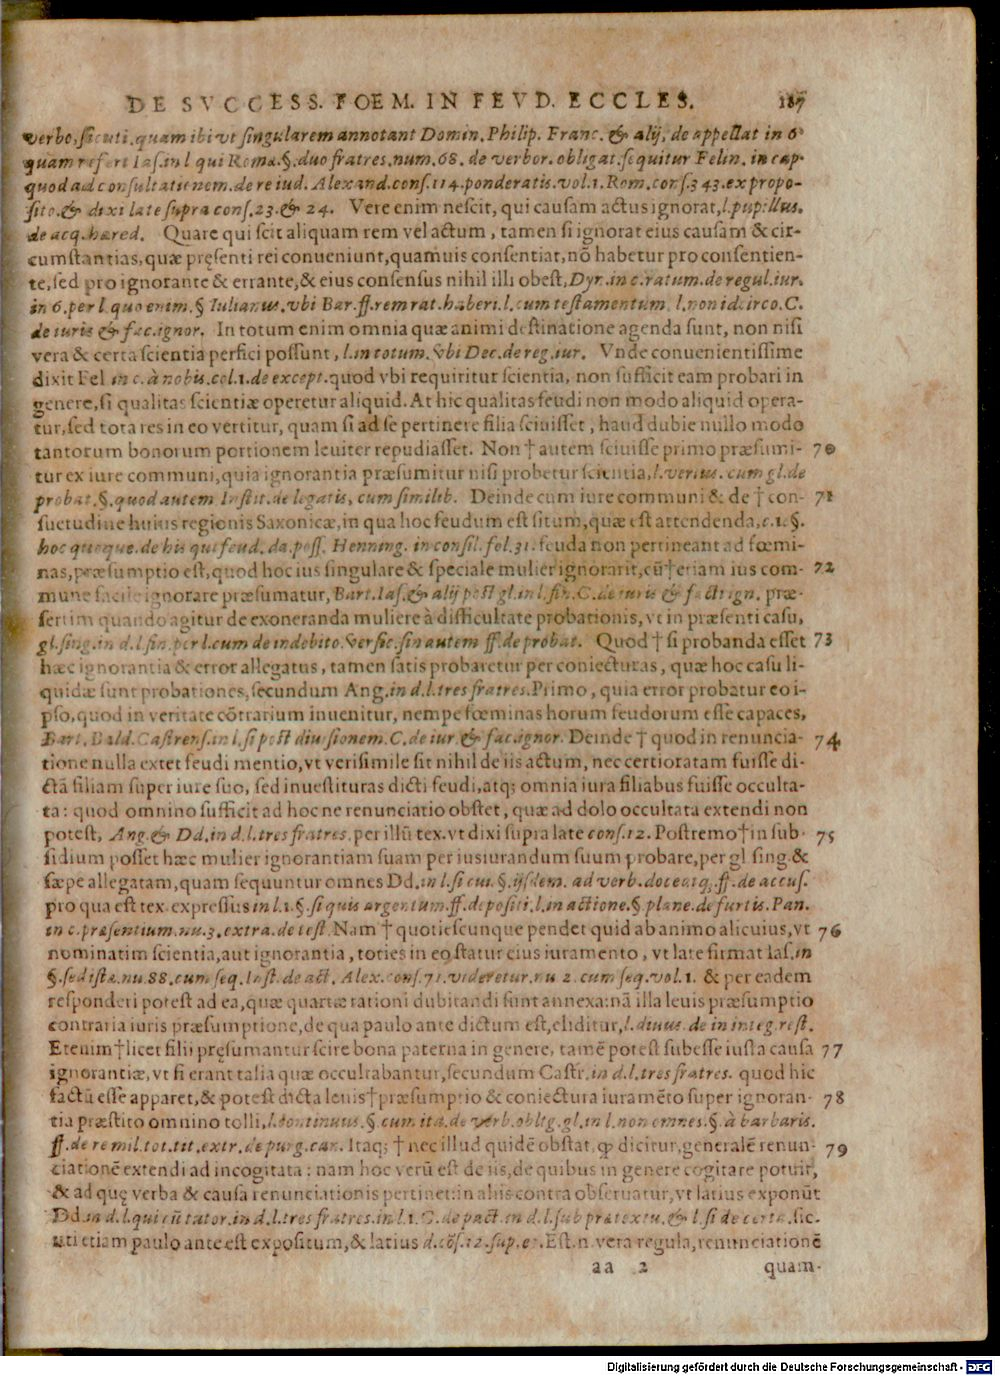 DE SVCCESS. FOEM. IN FEVD. ECCLES. 187
verbo, sicuti. quam ibi vt singularem annotant Domin. Philip. Franc. & alij, de appellat in 6
quam refert Ias. in l qui Roma. §. duo fratres. num. 68. de verbor. obligat. sequitur Felin. in cap.
quod ad consultationem. de re iud. Alexand. cons. 114. ponderatis. vol. 1. Rom. cons. 343. ex propo-
sito. & dixi late supra cons. 23. & 24. Vere enim nescit, qui causam actus ignorat, l. pupillus.
de acq. hæred. Quare qui scit aliquam rem vel actum, tamen si ignorat eius causam & cir-
cumstantias, quæ pręsenti rei conueniunt, quamuis consentiat, nō habetur pro consentien-
te, sed pro ignorante & errante, & eius consensus nihil illi obest, Dyr. in c. ratum. de regul. iur.
in 6. per l. quo enim. § Iulianus. vbi Bar. ff. rem rat. haberi. l. cum testamentum, l. non idcirco. C.
de iuris & fac. ignor. In totum enim omnia quæ animi destinatione agenda sunt, non nisi
vera & certa scientia perfici possunt, l. in totum. vbi Dec. de reg. iur. Vnde conuenientissime
dixit Fel in c. à nobis. col. 1. de except. quod vbi requiritur scientia, non sufficit eam probari in
genere, si qualitas scientiæ operetur aliquid. At hic qualitas feudi non modo aliquid opera-
tur, sed tota res in eo vertitur, quam si ad se pertinere filia sciuisset, haud dubie nullo modo
tantorum bonorum portionem leuiter repudiasset. Non † autem sciuisse primo præsumi- 70
tur ex iure communi, quia ignorantia præsumitur nisi probetur scientia, l. verius. cum gl. de
probat. §. quod autem Instit. de legatis, cum similib. Deinde cum iure communi & de † con- 71
suetudine huius regionis Saxonicæ, in qua hoc feudum est situm, quæ est attendenda, c. 1. §.
hoc quoque. de his qui feud. da. poss. Henning. in consil. fel. 31. feuda non pertineant ad fœmi-
nas, præsumptio est, quod hoc ius singulare & speciale mulier ignorarit, cū † etiam ius com- 72
mune facile ignorare præsumatur, Bart. Ias. & alij post gl. in l. fin. C. de iuris & facti ign. præ-
sertim quando agitur de exoneranda muliere à difficultate probationis, vt in præsenti casu,
gl. sing. in d. l. fin. per l. cum de indebito. Versic. sin autem ff. de probat. Quod † si probanda esset 73
hæc ignorantia & error allegatus, tamen satis probaretur per coniecturas, quæ hoc casu li-
quidæ sunt probationes, secundum Ang. in d. l. tres fratres. Primo, quia error probatur eo i-
pso, quod in veritate cōtrarium inuenitur, nempe fœminas horum feudorum esse capaces,
Bart. Bald. Castrens. in l. si post diuisionem. C. de iur. & fac. ignor. Deinde † quod in renuncia- 74
tione nulla extet feudi mentio, vt verisimile sit nihil de iis actum, nec certioratam fuisse di-
ctā filiam super iure suo, sed inuestituras dicti feudi, atq; omnia iura filiabus fuisse occulta-
ta: quod omnino sufficit ad hoc ne renunciatio obstet, quæ ad dolo occultata extendi non
potest, Ang. & Dd. in d. l. tres fratres. per illū tex. vt dixi supra late cons. 12. Postremo † in sub- 75
sidium posset hæc mulier ignorantiam suam per iusiurandum suum probare, per gl sing. &
sæpe allegatam, quam sequuntur omnes Dd. in l. si cui. §. ijsdem. ad verb. doceatq; ff. de accus.
pro qua est tex. expressus in l. 1. §. si quis argentum. ff. depositi. l. in actione. §. plane. de furtis. Pan.
in c. præsentium. nu. 3. extra. de test. Nam † quotiescunque pendet quid ab animo alicuius, vt 76
nominatim scientia, aut ignorantia, toties in eo statur eius iuramento, vt late firmat Ias. in
§. sed ista. nu. 88. cum seq. Inst. de act. Alex. cons. 71. videretur. nu 2. cum seq. vol. 1. & per eadem
responderi potest ad ea, quæ quartæ rationi dubitandi sunt annexa: nā illa leuis præsumptio
contraria iuris præsumptione, de qua paulo ante dictum est, eliditur, l. diuus. de in integ. rest.
Etenim † licet filii pręsumantur scire bona paterna in genere, tamē potest subesse iusta causa 77
ignorantiæ, vt si erant talia quæ occultabantur, secundum Castr. in d. l. tres fratres. quod hic
factū esse apparet, & potest dicta leuis † præsumptio & coniectura iuramēto super ignoran- 78
tia præstito omnino tolli, l. continuus. §. cum ita. de verb. oblig. gl. in l. non omnes. §. à barbaris.
ff. de re mil. tot. tit. extr. de purg. can. Itaq; † nec illud quidē obstat, qꝫ dicitur, generalē renun- 79
ciationē extendi ad incogitata: nam hoc verū est de iis, de quibus in genere cogitare potuit,
& ad quę verba & causa renunciationis pertinet: in aliis contra obseruatur, vt latius exponūt
Dd. in d. l. qui cū tutor. in d. l. tres fratres. in l. 1. C. de pact. in d. l. sub prætextu. & l. si de certa. sic-
uti etiam paulo ante est expositum, & latius d. cōs. 12. sup. eo. Est. n. vera regula, renunciationē
aa 2 quam-
Digitalisierung gefördert durch die Deutsche Forschungsgemeinschaft - DFG